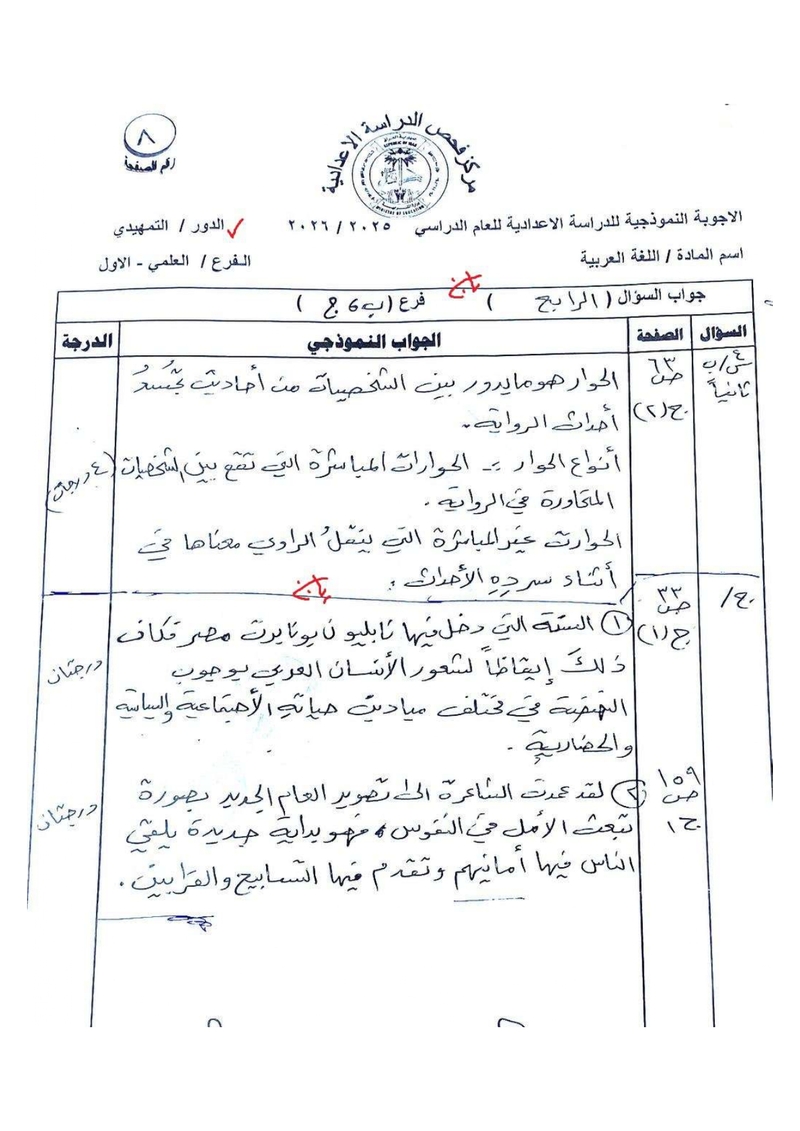 ٨
رقم الصفحة
مركز فحص الدراسة الاعدادية
الاجوبة النموذجية للدراسة الاعدادية للعام الدراسي ٢٠٢٥ / ٢٠٢٦ الدور / التمهيدي
اسم المادة / اللغة العربية الفرع / العلمي - الاول
جواب السؤال ( الرابع ) فرع ( ب و ج )
السؤال الصفحة الجواب النموذجي الدرجة
س٤/ب ص ٦٣ الحوار هو ما يدور بين الشخصيات من أحاديث تُجسّدُ
ثانياً ج(٢) أحداث الرواية.
أنواع الحوار :- الحوارات المباشرة التي تقع بين الشخصيات (٤ درجات)
المتحاورة في الرواية .
الحوارت غير المباشرة التي ينقلُ الراوي معناها في
أثناء سردِهِ الأحداث .
ج/ ص ٣٣ ج(١) ① السنة التي دخل فيها نابليون بونابرت مصر فكان
ذلكَ إيقاظاً لشعور الأنسان العربي بوجوب درجتان
النهضة في مختلف ميادين حياتهِ الأجتماعية والسياسية
والحضاريةِ .
ص ١٥٩ ج١ ② لقد عمدت الشاعرة الى تصوير العام الجديد بصورة درجتان
تبعث الأمل في النفوس ، فهو بداية جديدة يلقي
الناس فيها أمانيهم وتقدم فيها التسابيح والقرابين .